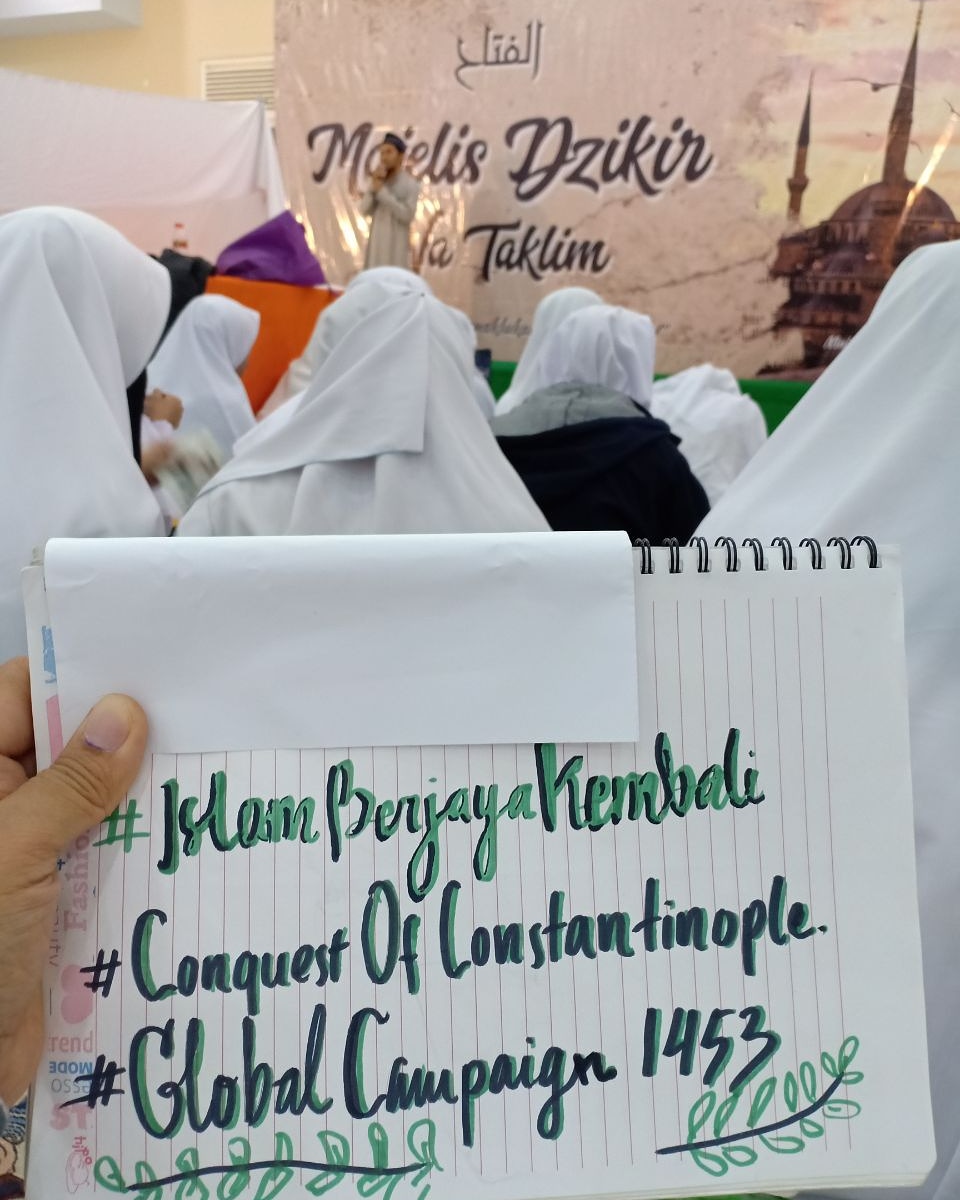 الفتاح
Majelis Dzikir
Wa Taklim
#IslamBerjayaKembali
#Conquest Of Constantinople.
#Global Campaign 1453
Fashion
trend
MODE
ST